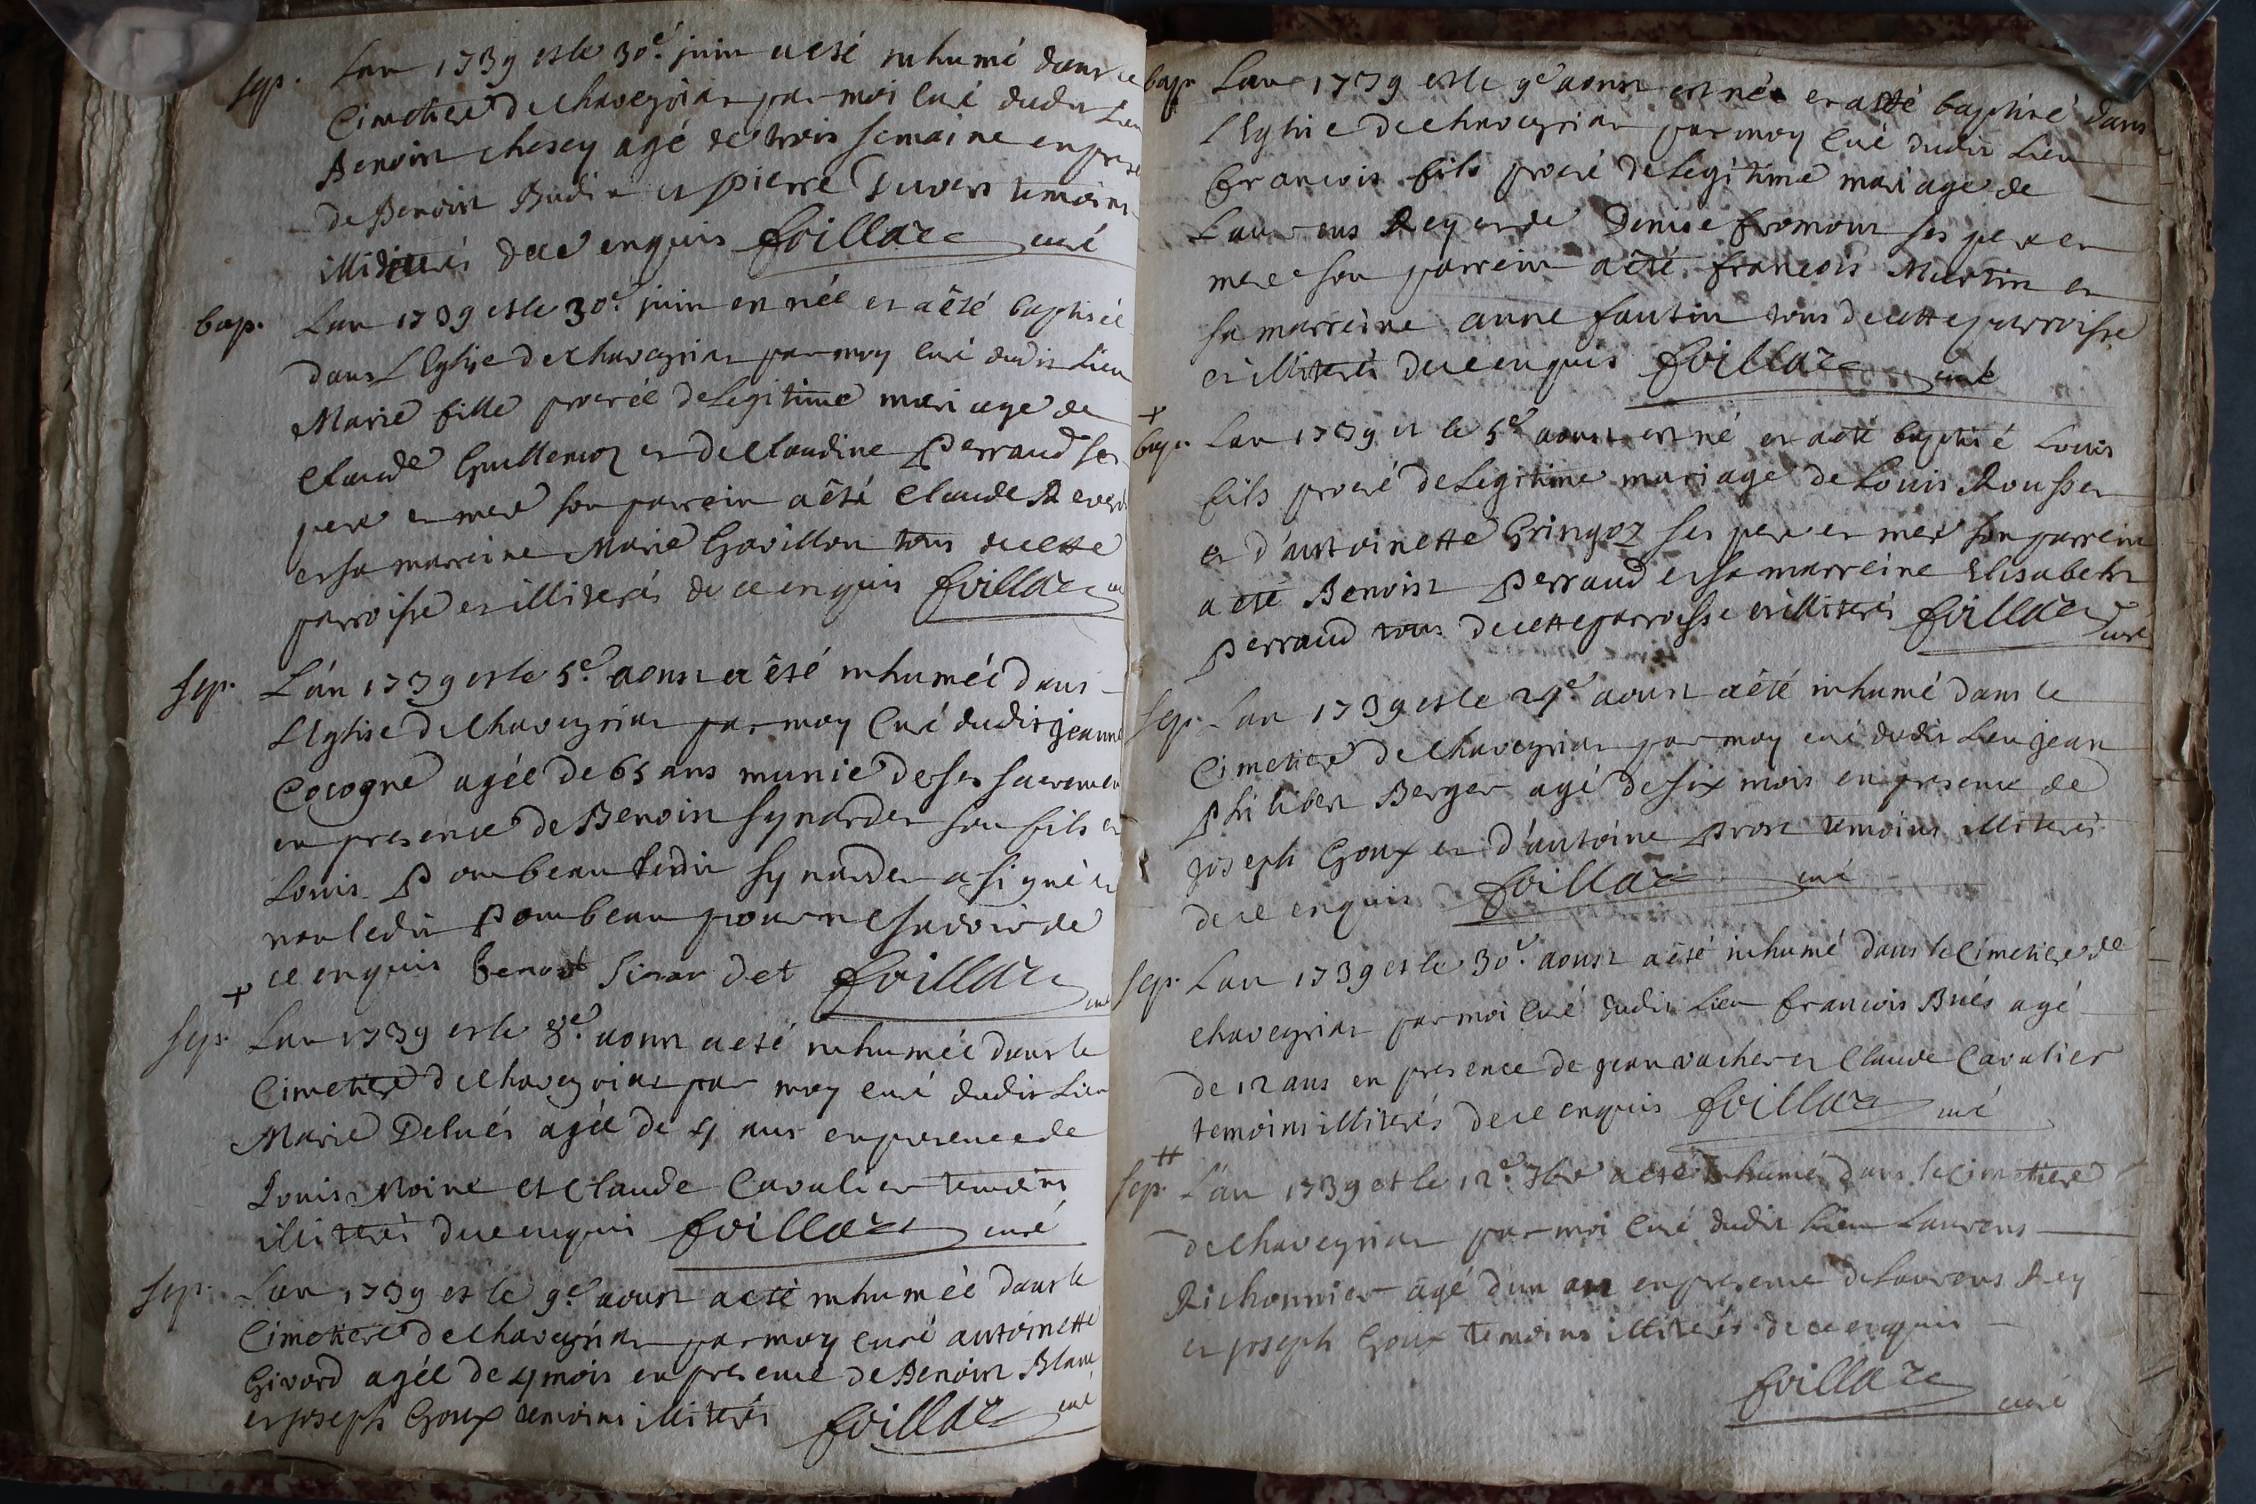 sep. Lan 1739 et le 30e juin a esté inhumé dans le
Cimetiere de Chaveyriat par moi Curé dudit Lieu
Benoist chesey agé de trois semaine en prese
de Benoist Budin et pierre Duvers temoins
illiterés de ce enquis foillard curé
bap. Lan 1739 et le 30e juin est née et a êté baptisée
dans L'Eglise de Chaveyriat par moy Curé dudit Lieu
Marie fille procréé de Legitime mariage de
Claude Guillemoz et de Claudine Perraud ses
pere et mere son parrein a êté Claude
et sa marreine Marie Gavillon tous de cette
parroisse et illiterés de ce enquis foillard cu
sep. L'án 1739 et le 5e aoust a êté inhumée dans
L'Eglise de Chaveyriat par moy Curé dudit jeanne
Cocogne agée de 65 ans munie de ses sacremen
en presence de Benoist Synardet son fils et
Louis Pombeau ledit Synardet a signé et
non ledit Pombeau pour ne savoir de
ce enquis benoit Sinardet foillard cur
+
sep. Lan 1739 et le 8e aoust a eté inhumée dans le
Cimetiere de Chaveyriat par moy curé dudit Lieu
Marie Delués agée de 4 ans en presence de
Louis Moine et Claude Cavalier temoins
illiterés de ce enquis foillard curé
sep. Lan 1739 et le 9e aoust a eté inhumée dans le
Cimetiere de Chaveyriat par moy Curé antoinette
Givord agée de 4 mois en presence de Benoist Blanc
et joseph Goux temoins illiterés foillard curé
bap. Lan 1739 et le 9e aoust est né et a été baptisé dans
L'Eglise de Chaveyriat par moy Curé dudit Lieu
francois fils procré de Legitime mariage de
Laurens Rey et de Denise fromont ses pere et
mere son parrein a êté francois Martin et
sa marreine anne fautin tous de cette parroisse
et illiterés de ce enquis foillard curé
+
bap. Lan 1739 et le 5e aoust est né et a eté baptisé Louis
fils procré de Legitime mariage de Louis Rousset
et d'antoinette Gringoz ses pere et mere son parrein
a eté Benoist Perraud et sa marreine Elisabeth
Perraud tous de cette parroisse et illiterés foillard curé
sep. Lan 1739 et le 24e aoust a êté inhumé dans le
Cimetiere de Chaveyriat par moy curé dudit Lieu jean
Philibert Berger agé de six mois en presence de
joseph Goux et d'antoine Prost temoins illiterés
de ce enquis foillard curé
sep. Lan 1739 et le 30e aoust a êté inhumé dans le Cimetiere de
Chaveyriat par moi Curé dudit Lieu francois Bués agé
de 12 ans en presence de jean vacher et Claude Cavalier
temoins illiterés de ce enquis foillard curé
++
sep. L'án 1739 et le 12e 7bre a eté inhumé dans le Cimetiere
de Chaveyriat par moi Curé dudit Lieu Laurens
Richonnier agé d'un an en presence de Laurens Rey
et joseph Goux temoins illiterés de ce enquis
foillard curé